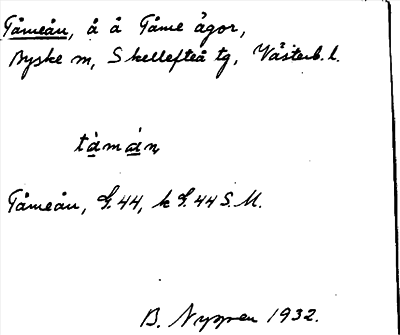 Tåmeån, å å Tåme ägor,
Byske sn, Skellefteå tg, Västerb. l.
tàmán
Tåmeån, G. 44, k G. 44 S. M.
B. Nyman 1932.